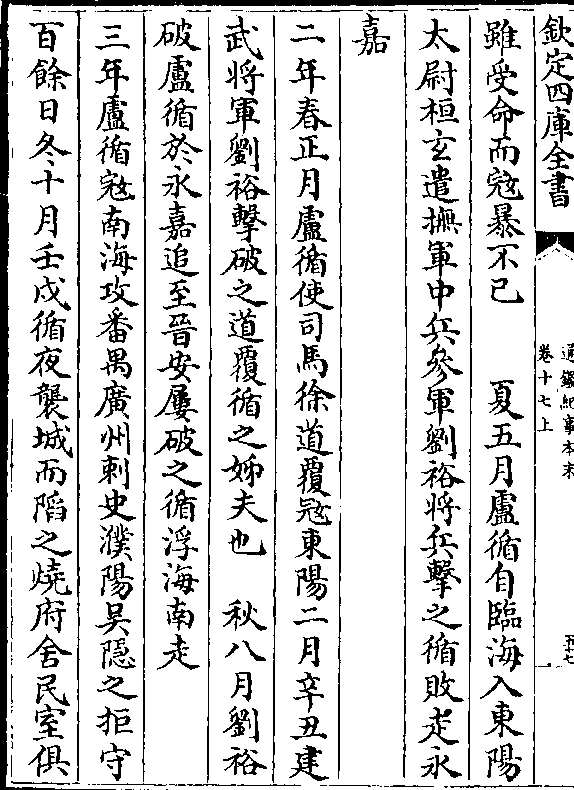 欽定四庫全書
通鑑紀事本末
卷十七上
五十七
雖受命而寇暴不已　夏五月盧循自臨海入東陽
太尉桓玄遣撫軍中兵參軍劉裕將兵擊之循敗走永
嘉
二年春正月盧循使司馬徐道覆寇東陽二月辛丑建
武將軍劉裕擊破之道覆循之姊夫也　秋八月劉裕
破盧循於永嘉追至晉安屢破之循浮海南走
三年盧循寇南海攻番禺廣州刺史濮陽吳隱之拒守
百餘日冬十月壬戌循夜襲城而陷之燒府舍民室俱